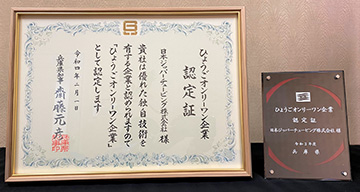 ひょうごオンリーワン企業
認定証
日本ジッパーチュービング株式会社 様
貴社は優れた独自技術を
有する企業と認められますので
「ひょうごオンリーワン企業」
として認定します
令和四年二月一日
兵庫県知事 齋藤元彦
ひょうごオンリーワン企業
認定証
日本ジッパーチュービング株式会社 様
令和3年度
兵庫県